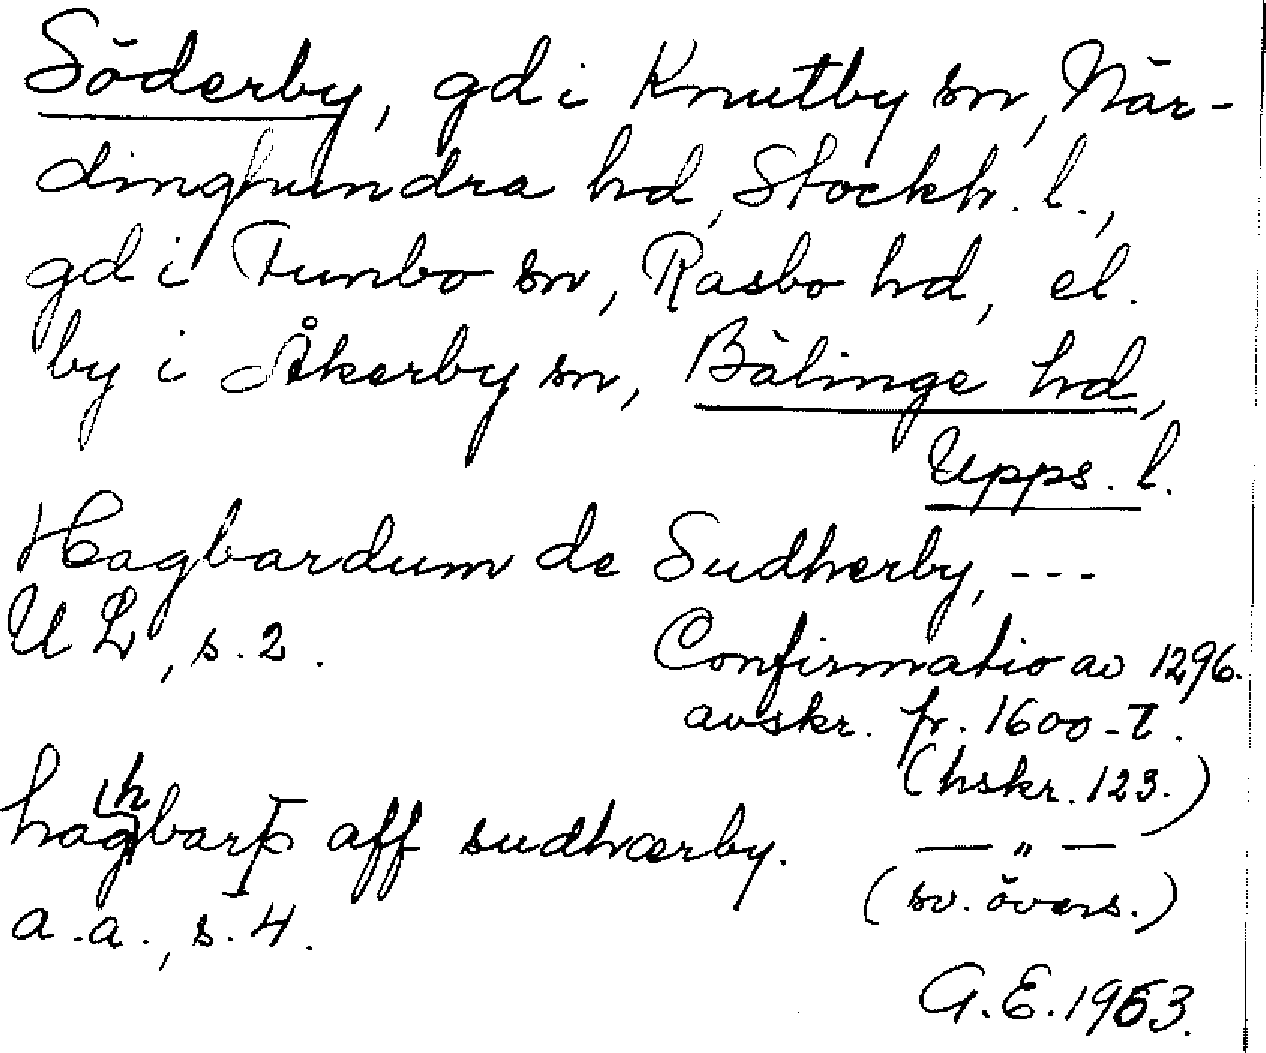 Söderby, gd i Knutby sn, När-
dinghundra hd, Stockh. l.,
gd i Funbo sn, Rasbo hd, el.
by i Åkerby sn, Bälinge hd,
Upps. l.
Hagbardum de Sudherby, ---
UL, s. 2.
Confirmatio av 1296.
avskr. fr. 1600-t.
(hskr. 123.)
haghbarþ aff sudhærby.
— " —
(sv. övers.)
a.a., s. 4.
G.E. 1953.